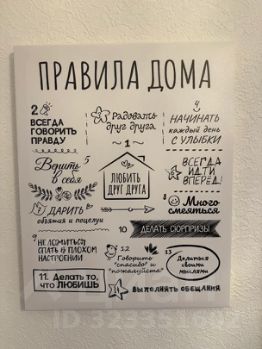 ПРАВИЛА ДОМА
2
ВСЕГДА
ГОВОРИТЬ
ПРАВДУ
3
Радовать
друг друга
4
НАЧИНАТЬ
каждый день
С УЛЫБКИ
1
ЛЮБИТЬ
ДРУГ ДРУГА
Верить
в себя
5
ВСЕГДА
ИДТИ
ВПЕРЕД!
7
ДАРИТЬ
объятия и поцелуи
8
Много
смеяться
9
НЕ ЛОЖИТЬСЯ
СПАТЬ В ПЛОХОМ
НАСТРОЕНИИ
10
ДЕЛАТЬ СЮРПРИЗЫ
11. Делать то,
что ЛЮБИШЬ
12
Говорить
"спасибо" и
"пожалуйста"
13
Делиться
своими
мыслями
ВЫПОЛНЯТЬ ОБЕЩАНИЯ